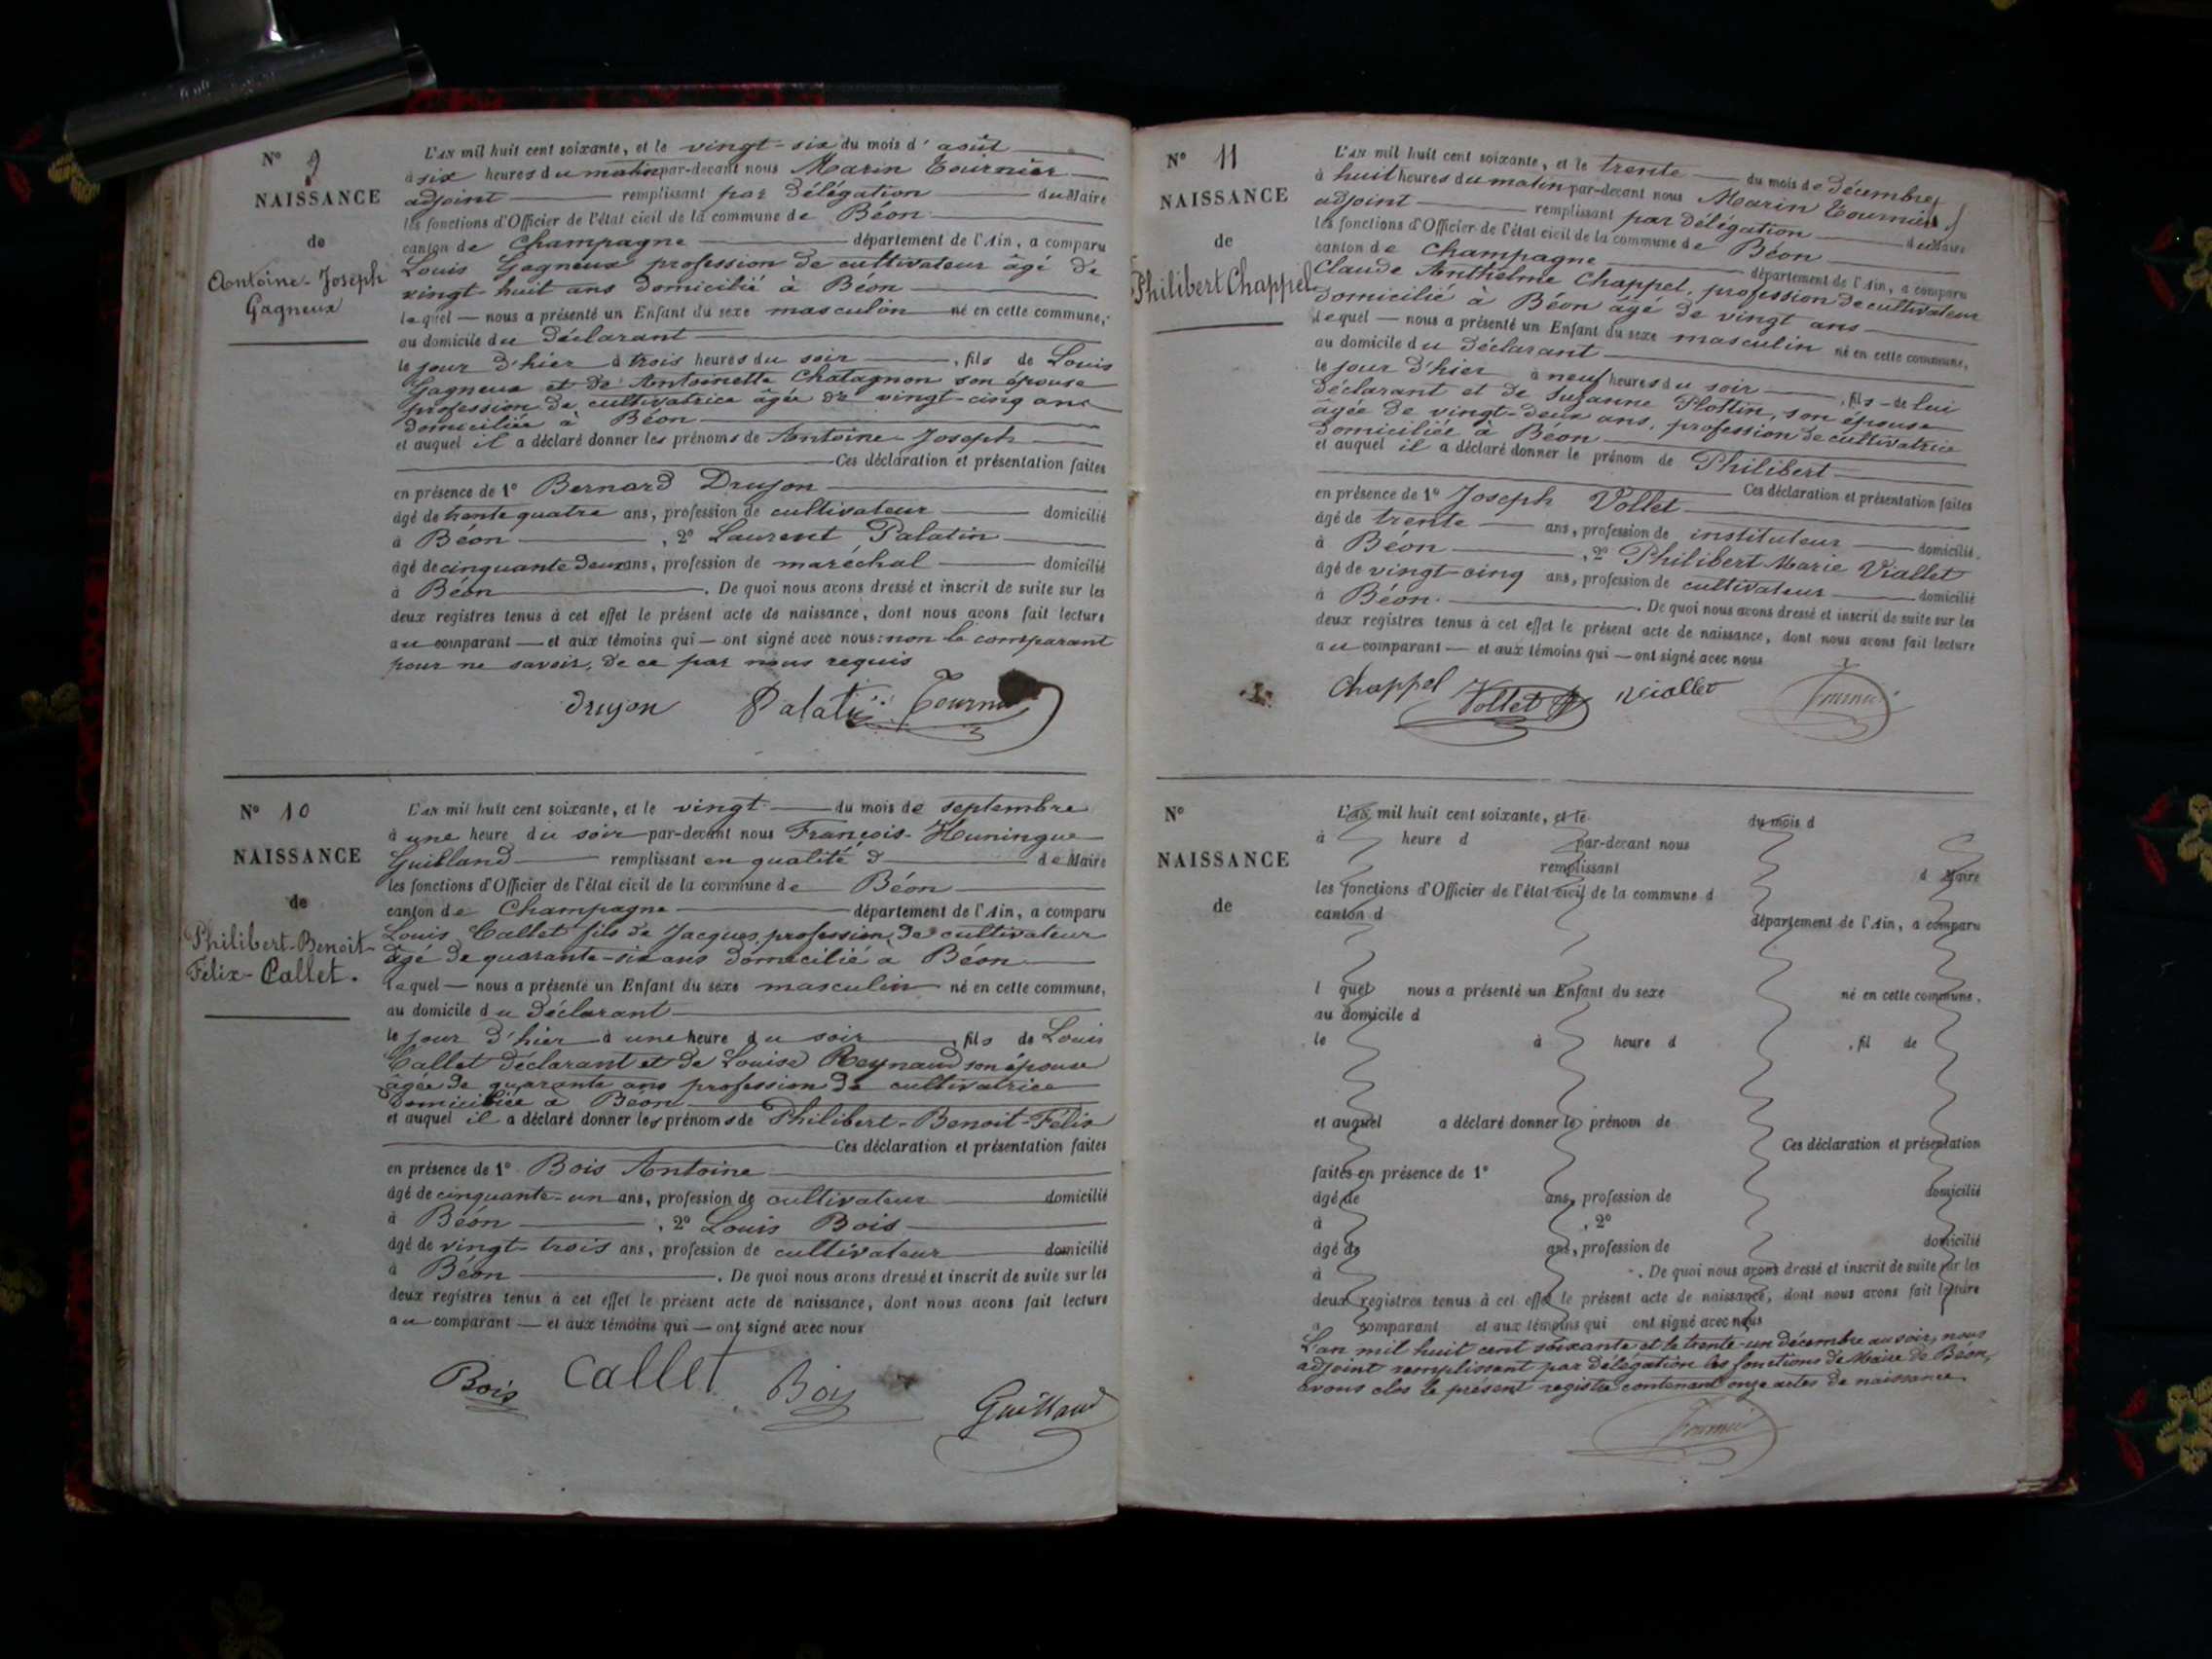 N° 9
NAISSANCE
de
Antoine-Joseph
Gagneux
L'AN mil huit cent soixante, et le vingt-six du mois d'août
à six heures du matin par-devant nous Marin Tournier
adjoint remplissant par Délégation du Maire
les fonctions d'Officier de l'état civil de la commune de Béon
canton de Champagne département de l'Ain, a comparu
Louis Gagneux profession de cultivateur âgé de
vingt-huit ans domicilié à Béon
lequel — nous a présenté un Enfant du sexe masculin né en cette commune,
au domicile du Déclarant
le jour d'hier à trois heures du soir , fils de Louis
Gagneux et de Antoinette Chatagnon son épouse
profession de cultivatrice âgée de vingt-cinq ans
domiciliée à Béon
et auquel il a déclaré donner les prénoms de Antoine-Joseph
Ces déclaration et présentation faites
en présence de 1° Bernard Drujon
âgé de trente quatre ans, profession de cultivateur domicilié
à Béon , 2° Laurent Palatin
âgé de cinquante deux ans, profession de maréchal domicilié
à Béon . De quoi nous avons dressé et inscrit de suite sur les
deux registres tenus à cet effet le présent acte de naissance, dont nous avons fait lecture
au comparant — et aux témoins qui — ont signé avec nous: non le comparant
pour ne savoir, de ce par nous requis
Drujon Palatin Tournier
N° 10
NAISSANCE
de
Philibert-Benoit-
Félix-Callet.
L'AN mil huit cent soixante, et le vingt du mois de septembre
à une heure du soir par-devant nous François-Huningue
Guilland remplissant en qualité d de Maire
les fonctions d'Officier de l'état civil de la commune de Béon
canton de Champagne département de l'Ain, a comparu
Louis Callet fils de Jacques, profession de cultivateur
âgé de quarante-six ans domicilié à Béon
lequel — nous a présenté un Enfant du sexe masculin né en cette commune,
au domicile du Déclarant
le jour d'hier à une heure du soir , fils de Louis
Callet déclarant et de Louise Reynaud son épouse
âgée de quarante ans profession de cultivatrice
domiciliée à Béon
et auquel il a déclaré donner les prénoms de Philibert-Benoit-Félix
Ces déclaration et présentation faites
en présence de 1° Bois Antoine
âgé de cinquante-un ans, profession de cultivateur domicilié
à Béon , 2° Louis Bois
âgé de vingt-trois ans, profession de cultivateur domicilié
à Béon . De quoi nous avons dressé et inscrit de suite sur les
deux registres tenus à cet effet le présent acte de naissance, dont nous avons fait lecture
au comparant — et aux témoins qui — ont signé avec nous
Bois Callet Bois Guilland
N° 11
NAISSANCE
de
Philibert Chappel
L'AN mil huit cent soixante, et le trente du mois de Décembre
à huit heures du matin par-devant nous Marin Tournier
adjoint remplissant par délégation du Maire
les fonctions d'Officier de l'état civil de la commune de Béon
canton de Champagne département de l'Ain, a comparu
Claude Anthelme Chappel, profession de cultivateur
domicilié à Béon âgé de vingt ans
lequel — nous a présenté un Enfant du sexe masculin né en cette commune,
au domicile du Déclarant
le jour d'hier à neuf heures du soir , fils - de lui
déclarant et de Suzanne Plottin, son épouse
âgée de vingt-deux ans, profession de cultivatrice
domiciliée à Béon
et auquel il a déclaré donner le prénom de Philibert
Ces déclaration et présentation faites
en présence de 1° Joseph Vollet
âgé de trente ans, profession de instituteur domicilié
à Béon , 2° Philibert-Marie Viallet
âgé de vingt-cinq ans, profession de cultivateur domicilié
à Béon . De quoi nous avons dressé et inscrit de suite sur les
deux registres tenus à cet effet le présent acte de naissance, dont nous avons fait lecture
au comparant — et aux témoins qui — ont signé avec nous
Chappel Vollet Viallet Tournier
N°
NAISSANCE
de
L'AN mil huit cent soixante, et le du mois d
à heure d par-devant nous
remplissant d Maire
les fonctions d'Officier de l'état civil de la commune d
canton d département de l'Ain, a comparu
l quel nous a présenté un Enfant du sexe né en cette commune,
au domicile d
le à heure d , fil de
et auquel a déclaré donner le prénom de
Ces déclaration et présentation
faites en présence de 1°
âgé de ans, profession de domicilié
à , 2°
âgé de ans, profession de domicilié
à . De quoi nous avons dressé et inscrit de suite sur les
deux registres tenus à cet effet le présent acte de naissance, dont nous avons fait lecture
a comparant et aux témoins qui ont signé avec nous
L'an mil huit cent soixante et le trente-un décembre au soir, nous
adjoint remplissant par délégation les fonctions de Maire de Béon,
avons clos le présent registre contenant onze actes de naissance
Tournier